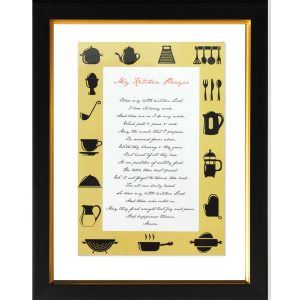 My Kitchen Prayer
Bless my little kitchen Lord,
I love its every nook,
And bless me as I do my work,
Wash pots & pans & cook.
May the meals that I prepare,
Be seasoned from above
With thy blessing & thy grace,
But most of all thy love.
As we partake of earthly food,
The table thou hast spread
We'll not forget to thank thee Lord
For all our daily bread
So bless my little kitchen Lord,
And those who enter in
May they find naught but joy and peace
And happiness therein
Amen